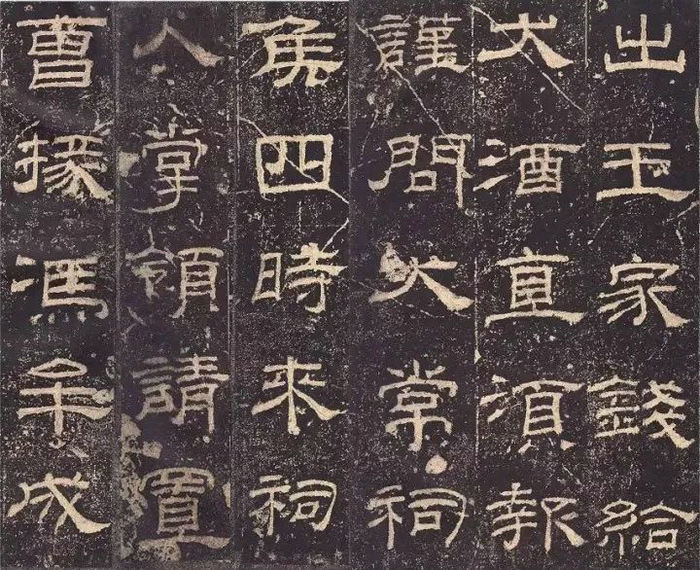 出王家錢給
犬酒直須報
謹問大常祠
侯四時來祠
人掌領請置
曹掾馮牟成